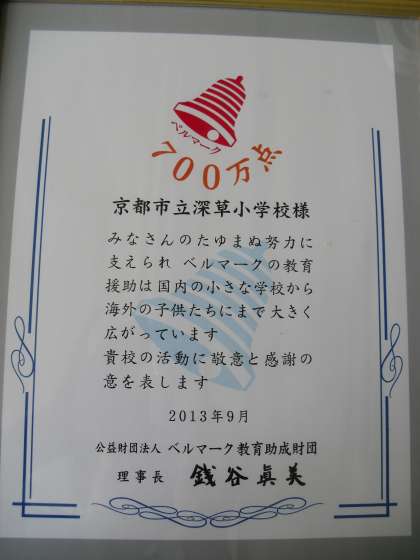 ベルマーク
700万点
京都市立深草小学校様
みなさんのたゆまぬ努力に
支えられ ベルマークの教育
援助は国内の小さな学校から
海外の子供たちにまで大きく
広がっています
貴校の活動に敬意と感謝の
意を表します
2013年9月
公益財団法人 ベルマーク教育助成財団
理事長 銭谷眞美